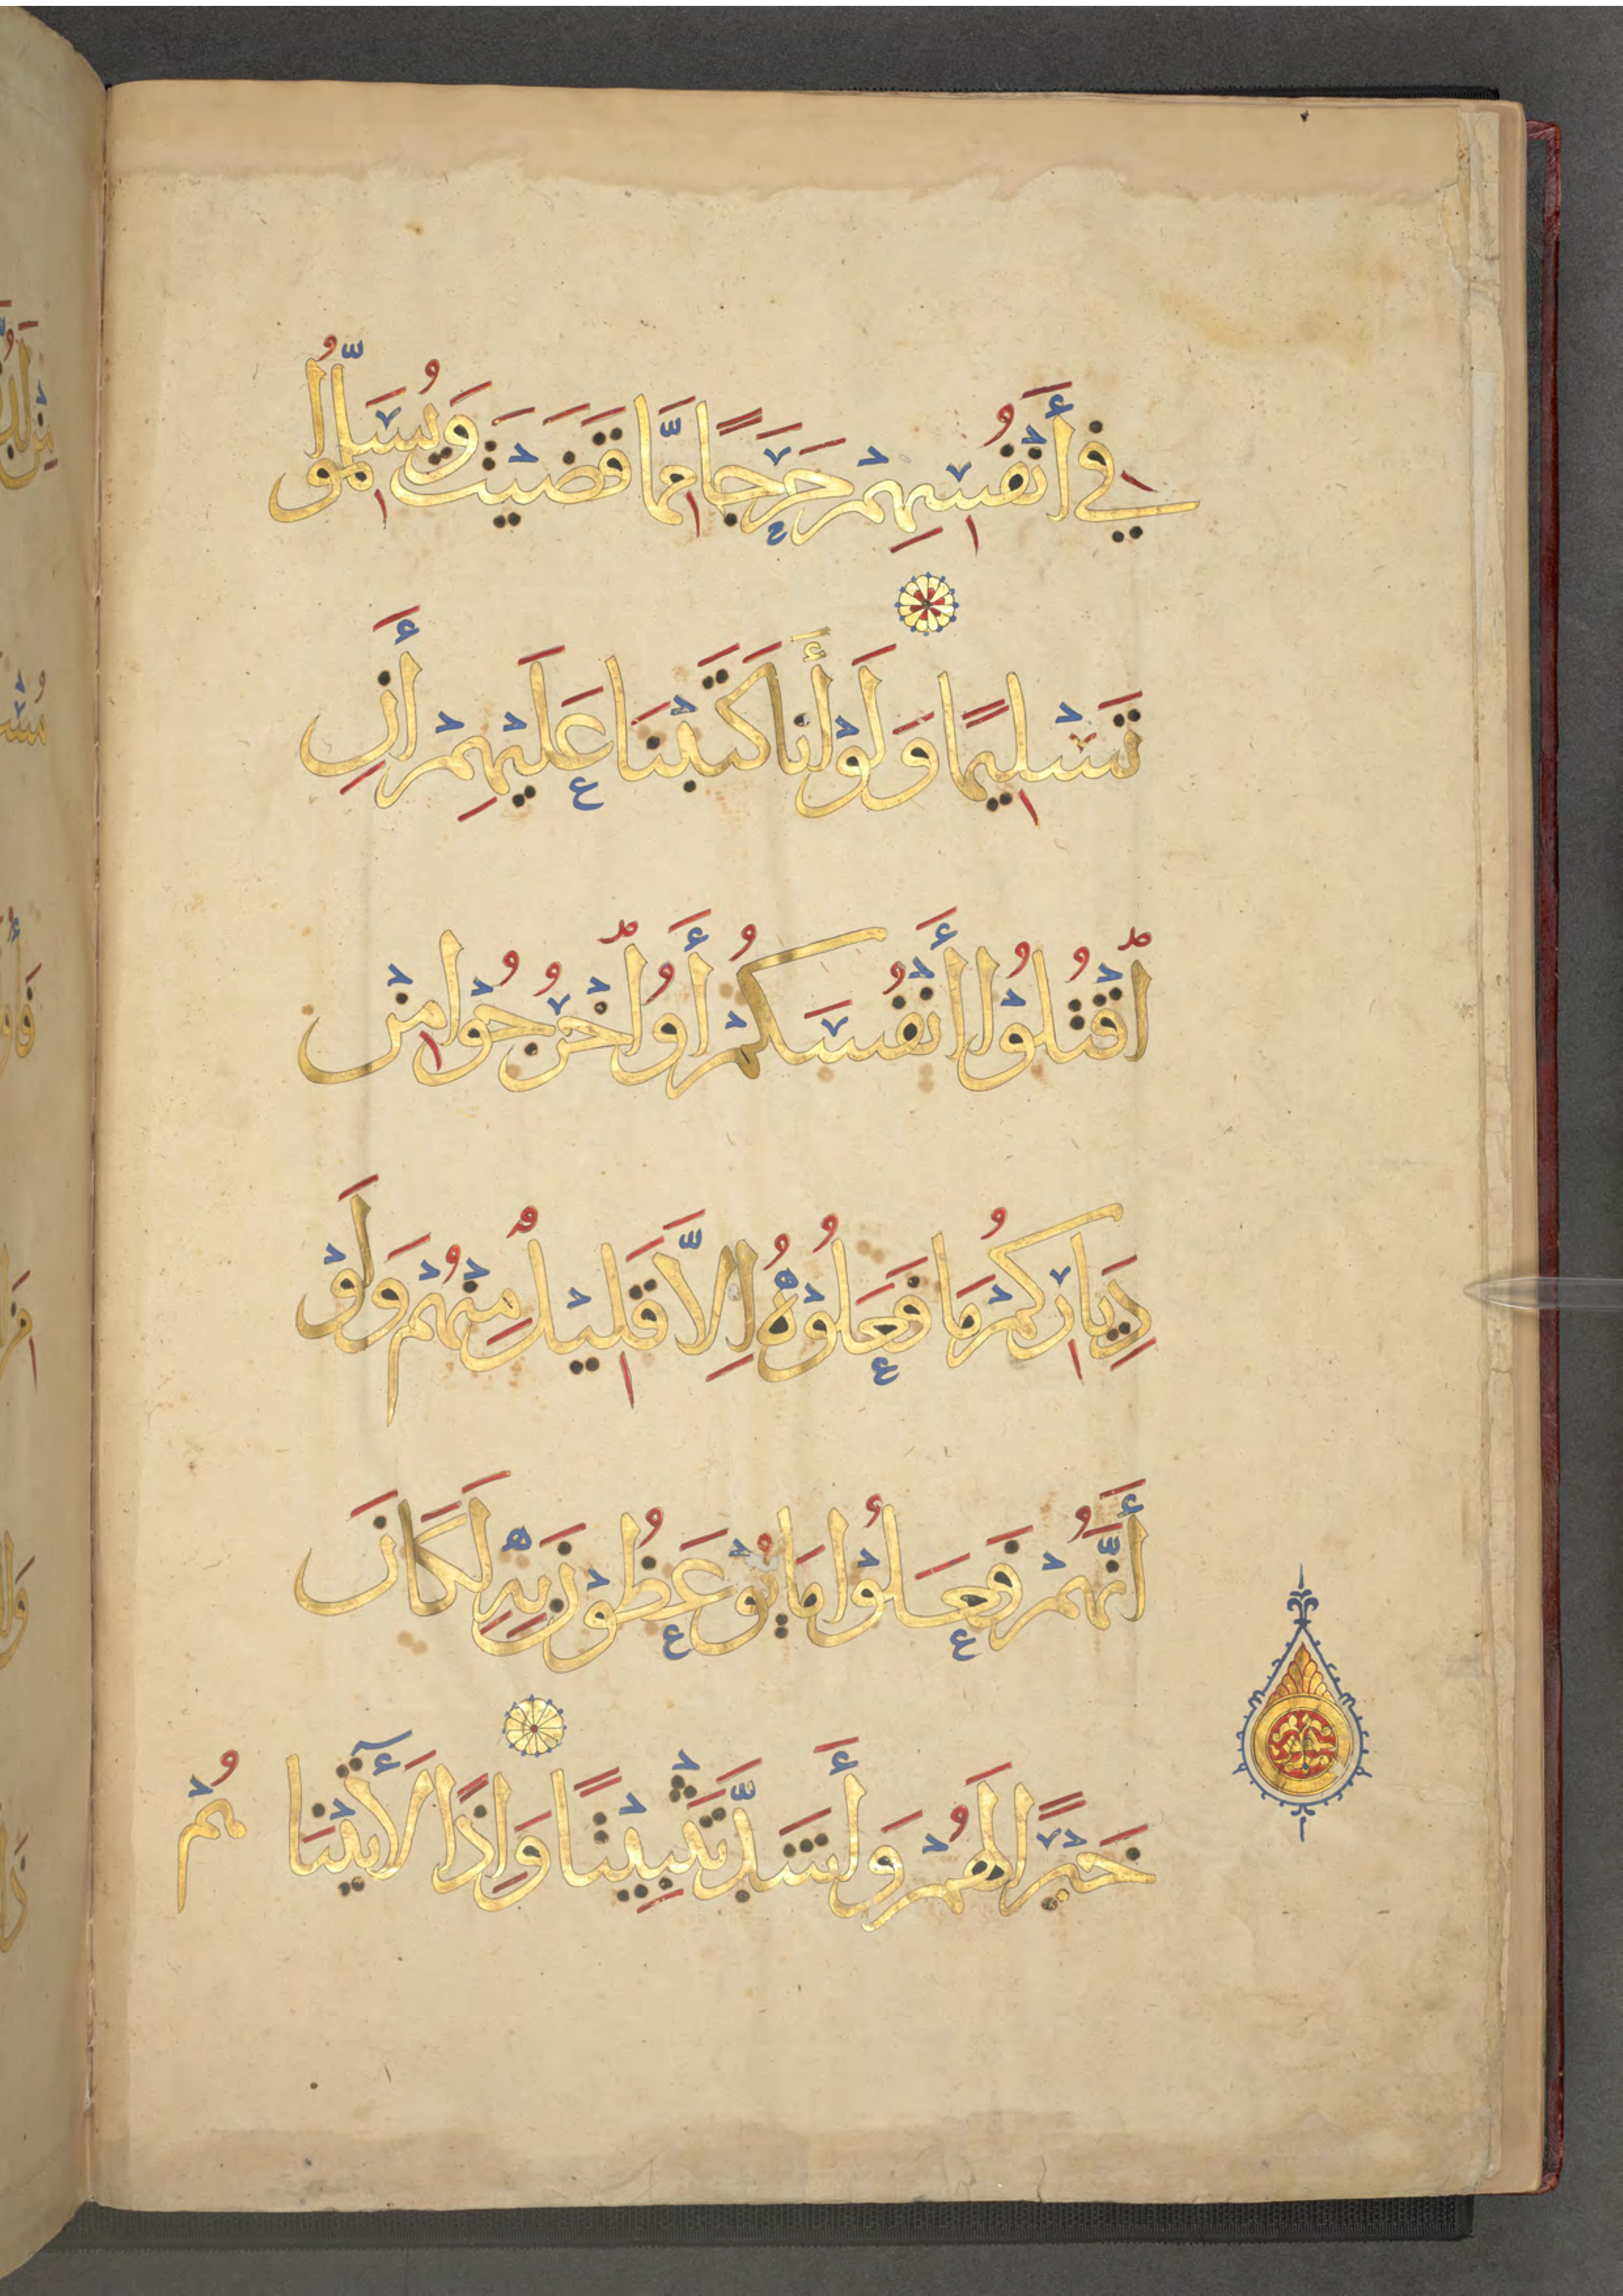 فِي أَنْفُسِهِمْ حَرَجًا مِمَّا قَضَيْتَ وَيُسَلِّمُوا
تَسْلِيمًا وَلَوْ أَنَا كَتَبْنَا عَلَيْهِمْ أَنِ
اُقْتُلُوْا أَنْفُسَكُمْ أَوُ اخْرُجُوْا مِنْ
دِيَارِكُمْ مَا فَعَلُوْهُ اِلَّا قَلِيْلٌ مِنْهُمْ وَلَوْ
أَنَّهُمْ فَعَلُوْا مَا يُوْعَظُوْنَ بِهِ لَكَانَ
خَيْرًا لَهُمْ وَأَشَدَّ تَثْبِيْتًا وَاِذًا لَأٓتَيْنَا هُمْ